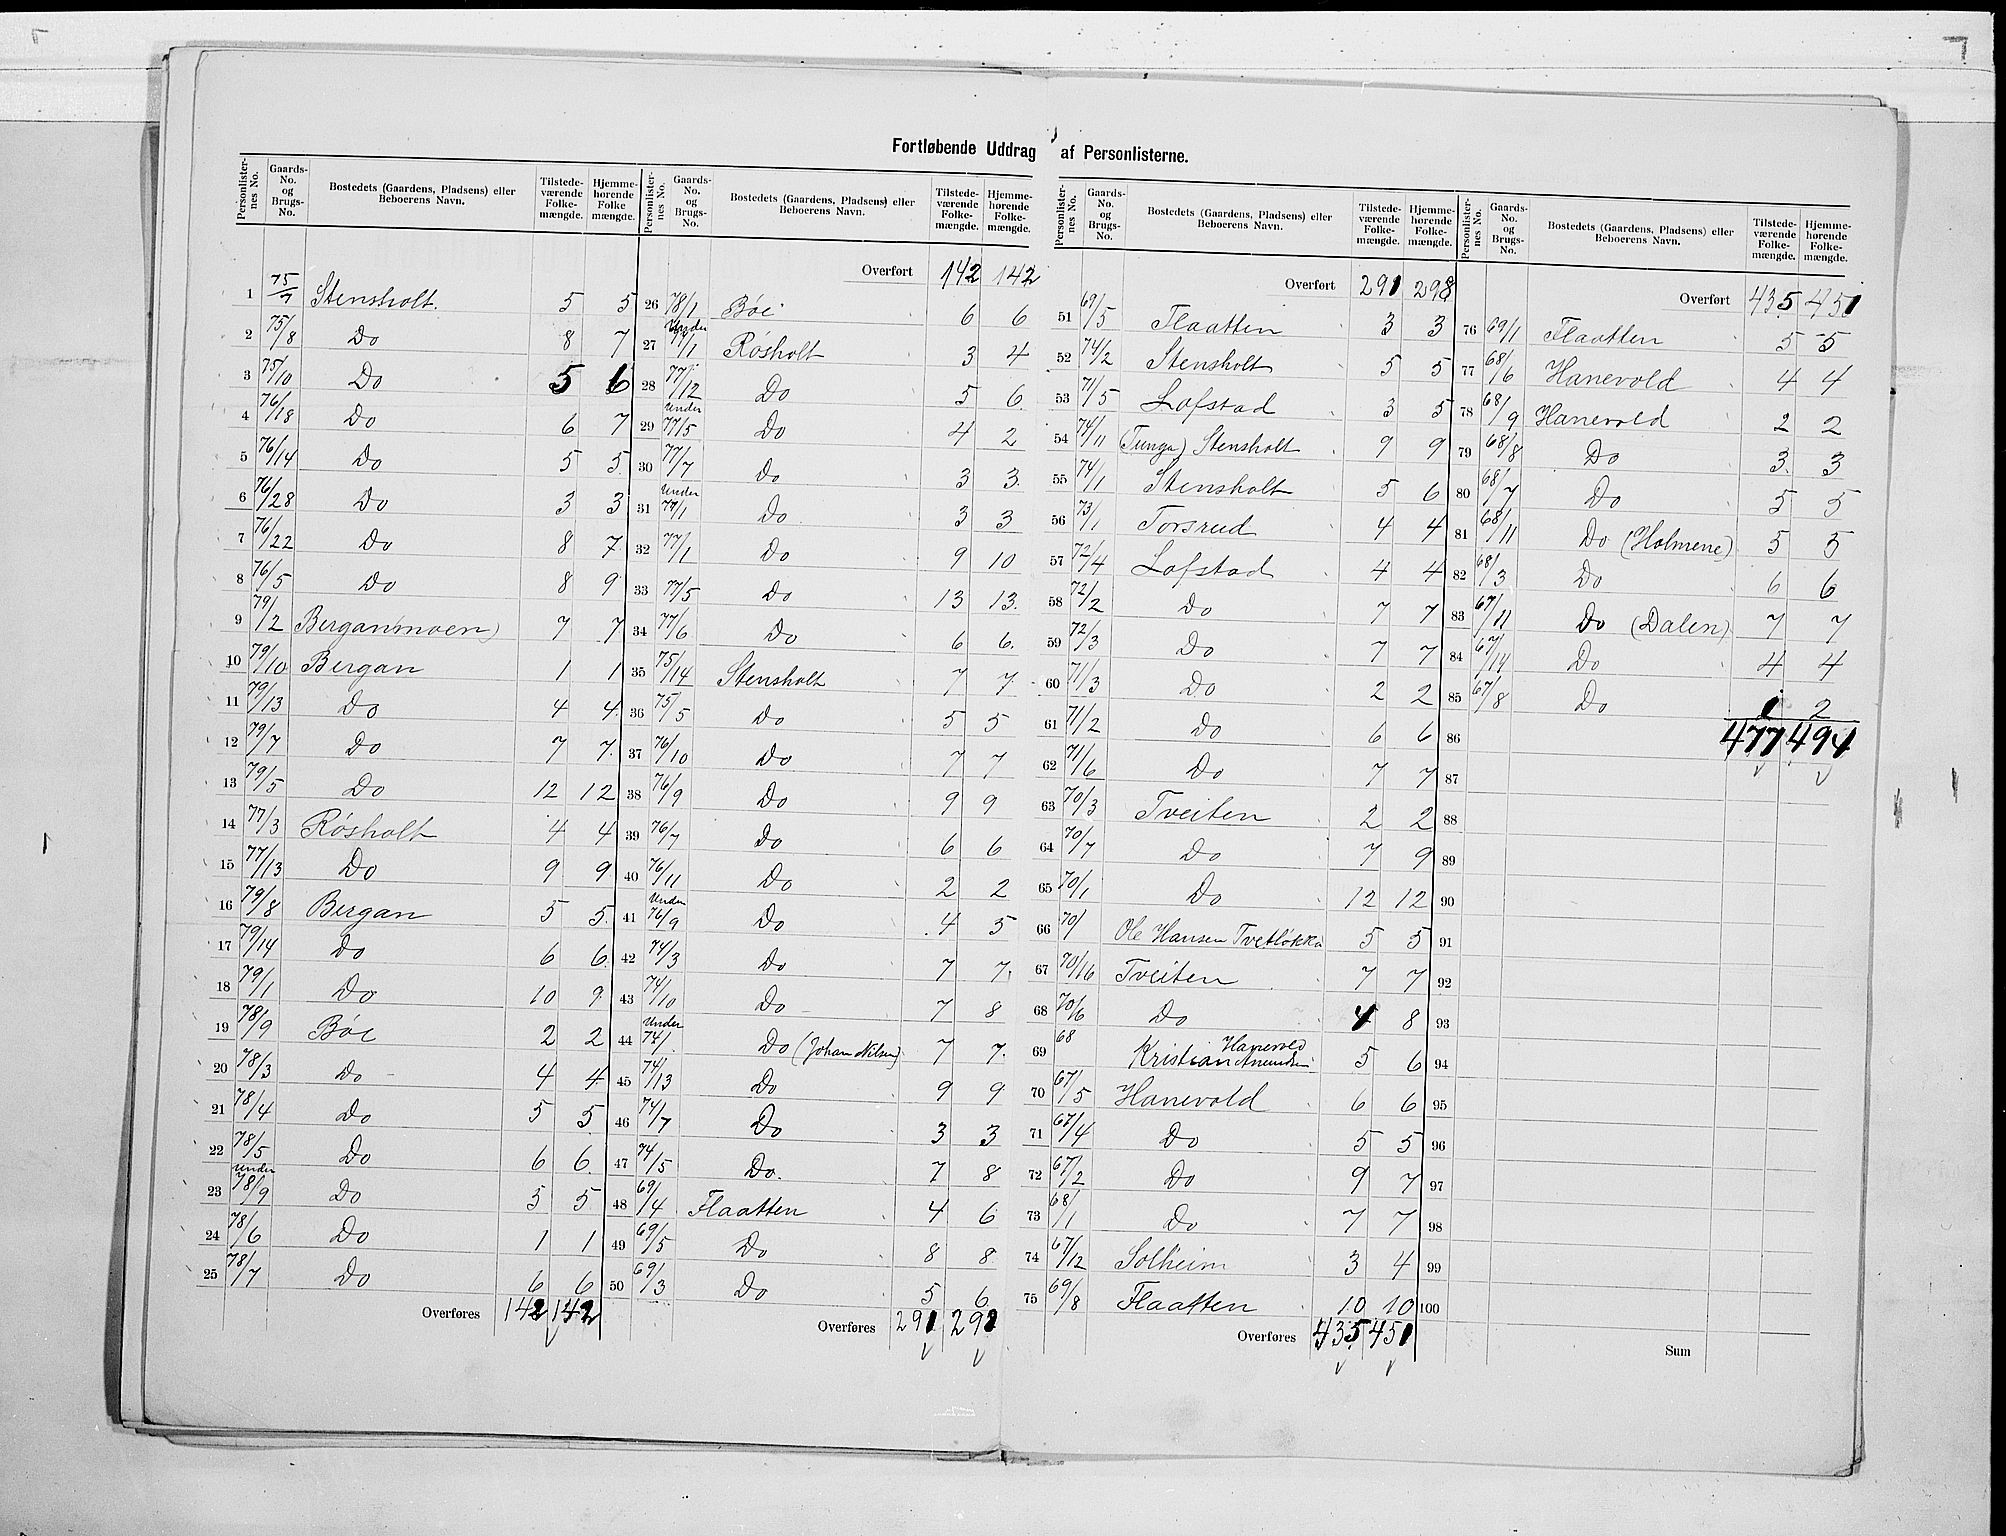 Fortløbende Uddrag af Personlisterne.
Personlister-nes No. Gaards-No. og Brugs-No. Bostedets (Gaardens, Pladsens) eller Beboerens Navn. Tilstede-værende Folke-mængde. Hjemme-hørende Folke mængde.
1 75/7 Stensholt. 5 5
2 75/8 Do 8 7
3 75/10 Do 5 6
4 76/18 Do 6 7
5 76/14 Do 5 5
6 76/28 Do 3 3
7 76/22 Do 8 7
8 76/5 Do 8 9
9 79/2 Berganmoen) 7 7
10 79/10 Bergan 1 1
11 79/13 Do 4 4
12 79/7 Do 7 7
13 79/5 Do 12 12
14 77/3 Røsholt 4 4
15 77/13 Do 9 9
16 79/8 Bergan 5 5
17 79/14 Do 6 6
18 79/1 Do 10 9
19 78/9 Bøe 2 2
20 78/3 Do 4 4
21 78/4 Do 5 5
22 78/5 Do 6 6
23 Under 78/9 Do 5 5
24 78/6 Do 1 1
25 78/7 Do 6 6
Overføres 142 142
Personlister-nes No. Gaards-No. og Brugs-No. Bostedets (Gaardens, Pladsens) eller Beboerens Navn. Tilstede-værende Folke-mængde. Hjemme-hørende Folke-mængde.
Overført 142 142
26 78/1 Bøe 6 6
27 Under 77/1 Røsholt 3 4
28 77/12 Do 5 6
29 Under 77/5 Do 4 2
30 77/7 Do 3 3
31 Under 77/1 Do 3 3
32 77/1 Do 9 10
33 77/5 Do 13 13
34 77/6 Do 6 6
35 75/14 Stensholt 7 7
36 75/5 Do 5 5
37 76/10 Do 7 7
38 76/9 Do 9 9
39 76/7 Do 6 6
40 76/11 Do 2 2
41 Under 76/9 Do 4 5
42 74/3 Do 7 7
43 74/10 Do 7 8
44 Under 74/1 Do (Johan Nilsen) 7 7
45 74/13 Do 9 9
46 74/7 Do 3 3
47 74/5 Do. 7 8
48 69/4 Flaatten 4 6
49 69/5 Do 8 8
50 69/3 Do 5 6
Overføres 291 298
Personlister-nes No. Gaards-No. og Brugs-No. Bostedets (Gaardens, Pladsens) eller Beboerens Navn. Tilstede-værende Folke-mængde. Hjemme-hørende Folke-mængde.
Overført 291 298
51 69/5 Flaatten 3 3
52 74/2 Stensholt 5 5
53 71/5 Lofstad 3 5
54 74/11 (Tunga) Stensholt 9 9
55 74/1 Stensholt 5 6
56 73/1 Torsrud 4 4
57 72/4 Lofstad 4 4
58 72/2 Do 7 7
59 72/3 Do 7 7
60 71/3 Do 2 2
61 71/2 Do 6 6
62 71/6 Do 7 7
63 70/3 Tveiten 2 2
64 70/7 Do 7 9
65 70/1 Do 12 12
66 70/ Ole Hansen Tvetløkka 5 5
67 70/16 Tveiten 7 7
68 70/6 Do 4 8
69 68 Kristian Anundsen Hanevold 5 6
70 67/5 Hanevold 6 6
71 67/4 Do 5 5
72 67/2 Do 9 7
73 68/1 Do 7 7
74 67/12 Solheim 3 4
75 69/8 Flaatten 10 10
Overføres 435 451
Personlister-nes No. Gaards-No. og Brugs-No. Bostedets (Gaardens, Pladsens) eller Beboerens Navn. Tilstede-værende Folke-mængde. Hjemme-hørende Folke-mængde.
Overført 435 451
76 69/1 Flaatten 5 5
77 68/6 Hanevold 4 4
78 68/9 Hanevold 2 2
79 68/8 Do 3 3
80 68/7 Do 5 5
81 68/11 Do (Holmene) 5 5
82 68/3 Do 6 6
83 67/11 Do (Dalen) 7 7
84 67/14 Do 4 4
85 67/8 Do 1 2
86 477 494
87
88
89
90
91
92
93
94
95
96
97
98
99
100
Sum